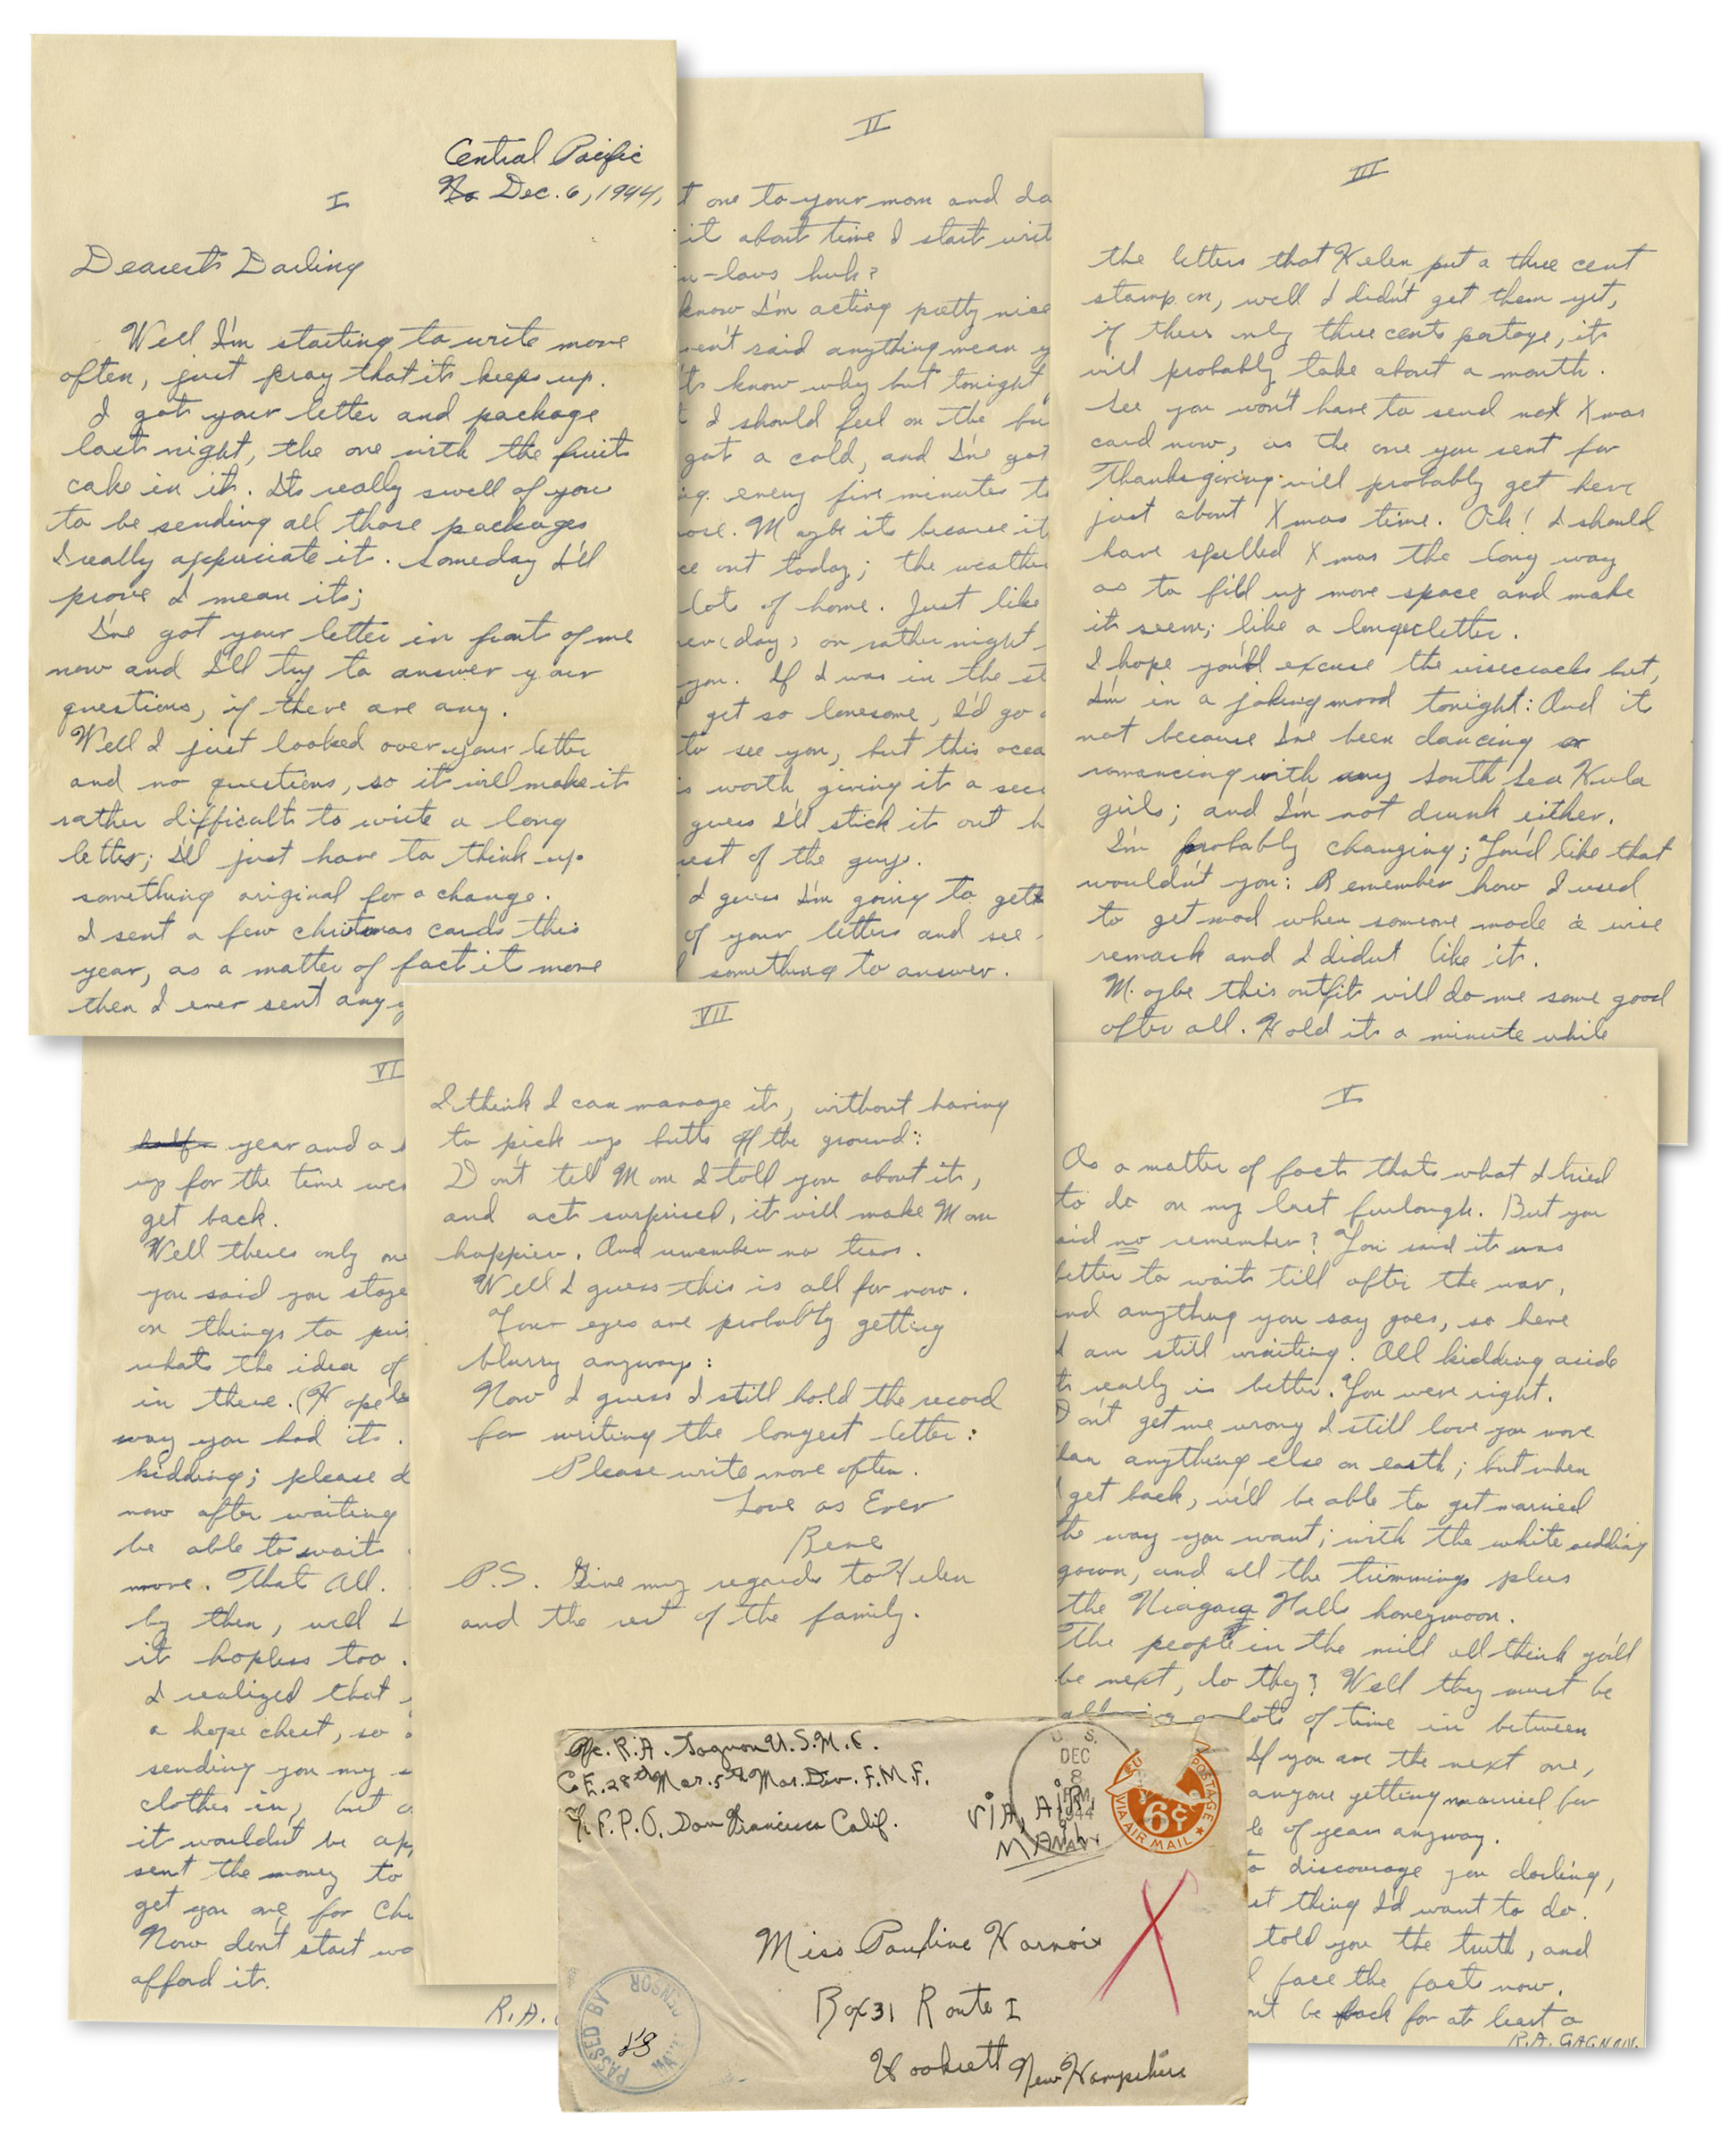 Central Pacific
No Dec. 6, 1944,
I
Dearest Darling
Well I'm starting to write more
often, just pray that it keeps up.
I got your letter and package
last night, the one with the fruit
cake in it. Its really swell of you
to be sending all those packages
I really appreciate it. Someday I'll
prove I mean it;
I've got your letter in front of me
now and I'll try to answer your
questions, if there are any.
Well I just looked over your letter
and no questions, so it will make it
rather difficult to write a long
letter; I'll just have to think up
something original for a change.
I sent a few christmas cards this
year, as a matter of fact it more
then I ever sent any
II
t one to your mom and da
it about time I start writ
n-laws huh?
know I'm acting pretty nice
ven't said anything mean y
't know why but tonight
t I should feel on the bu
got a cold, and I've got
ng every five minutes to
nose. Maybe its because it
ce out today; the weather
lots of home. Just like
ver(day) or rather night
you. If I was in the st
get so lonesome, I'd go
to see you, but this ocea
is worth giving it a sec
guess I'll stick it out h
rest of the guys.
I guess I'm going to get
of your letters and see
something to answer.
III
the letters that Helen put a three cent
stamp on, well I didn't get them yet,
if theres only three cents postage, it
will probably take about a month.
See you won't have to send not Xmas
card now, as the one you sent for
Thanksgiving will probably get here
just about Xmas time. Och! I should
have spelled Xmas the long way
as to fill up more space and make
it seem; like a longer letter.
I hope you'll excuse the wisecracks but,
I'm in a joking mood tonight: And it
not because I've been dancing or
romancing with any South Sea Hula
girls; and I'm not drunk either.
I'm probably changing; You'd like that
wouldn't you: Remember how I used
to get mad when someone made a wise
remark and I didn't like it.
Maybe this outfit will do me some good
after all. Hold it a minute while
VI
half year and a
up for the time we
get back.
Well theres only one
you said you stop
on things to pu
whats the idea of
in there. (Hopele
way you had it.
kidding; please d
now after waiting
be able to wait
more. That All.
by then, well I
it hopless too.
I realized that
a hope chest, so
sending you my s
clothes in, but
it wouldn't be ap
sent the money to
get you one for Ch
Now don't start wo
afford it.
R.A.
VII
I think I can manage it, without having
to pick up butts off the ground:
Don't tell Mom I told you about it,
and act surprised, it will make Mom
happier. And remember no tears.
Well I guess this is all for now.
Your eyes are probably getting
blurry anyway:
Now I guess I still hold the record
for writing the longest letter:
Please write more often.
Love as Ever
Rene
P.S. Give my regards to Helen
and the rest of the family.
V
As a matter of fact thats what I tried
to do on my last furlough. But you
said no remember? You said it was
better to wait till after the war,
and anything you say goes, so here
I am still waiting. All kidding aside
it really is better. You were right.
Don't get me wrong I still love you more
than anything else on earth; but when
I get back, we'll be able to get married
the way you want; with the white wedding
gown, and all the trimmings plus
the Niagara Falls honeymoon.
The people in the mill all think you'll
be next, do they? Well they must be
allowing a lots of time in between
If you are the next one,
anyone getting married for
le of years anyway.
to discourage you darling,
st thing I'd want to do.
told you the truth, and
face the facts now.
n't be back for at least a
R.A. GAGNON.
Pfc. R.A. Gagnon U.S.M.C.
C.E. 28th Mar. 5th Mar. Div. F.M.F.
% F.P.O. San Francisco Calif.
VIA AIR
MAIL
U.S.
DEC
8
PM
1944
NAVY
U.S. POSTAGE
6¢
VIA AIR MAIL
X
Miss Pauline Harnois
Box 31 Route I
Hooksett New Hampshire
PASSED BY NAVAL CENSOR